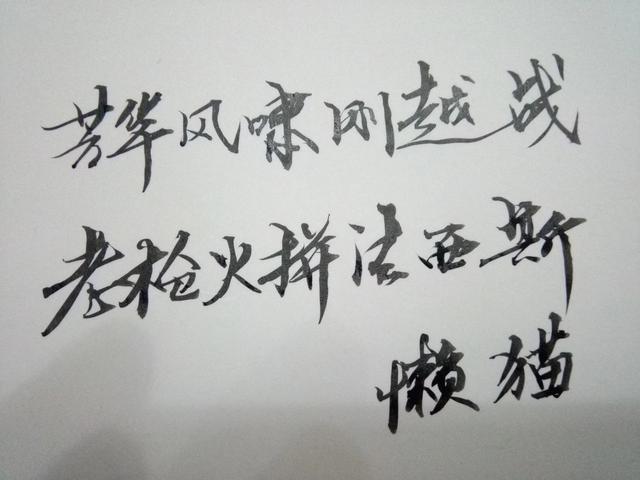 芳华风啸刚越战
老枪火拼法西斯
懒猫